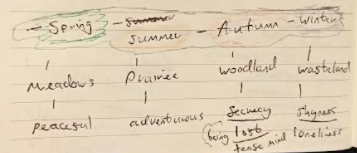 - Spring - summer - Autumn - Winter
summer
meadows Prairiee woodland wasteland
peaceful adventurous Secrecy shyness
being lost loneliness
tense mind